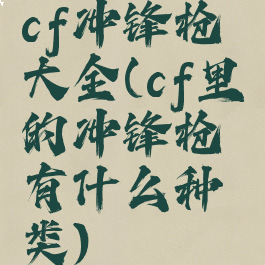 cf冲锋枪
大全(cf里
的冲锋枪
有什么种
类)